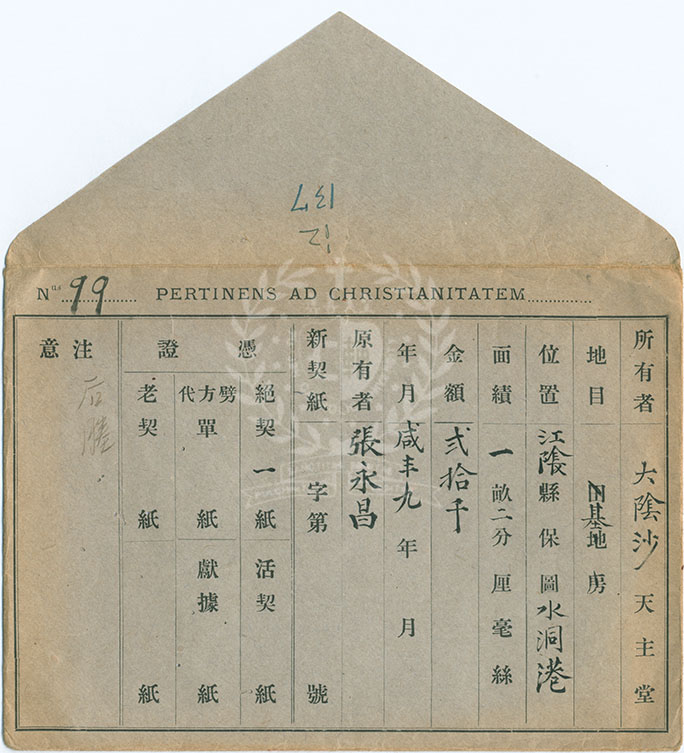 137
12
Nus 99 PERTINENS AD CHRISTIANITATEM
所有者 大陰沙 天主堂
地目 基地房
位置 江陰縣保圖水洞港
面績 一畝二分厘毫絲
金額 弍拾千
年月 咸丰九年月
原有者 張永昌
新契紙 字第 號
憑證
絕契一紙 活契 紙
劈方代單 紙 獻據 紙
老契 紙 紙
注意